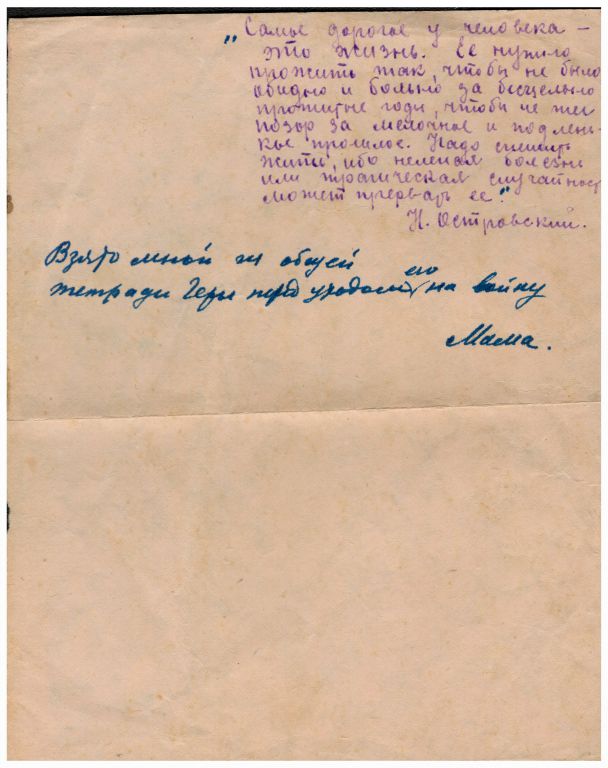 „Самое дорогое у человека –
это жизнь. Ее нужно
прожить так, чтобы не было
обидно и больно за бесцельно
прожитые годы, чтобы не жег
позор за мелочное и подлень-
кое прошлое. Надо спешить
жить, ибо нелепая болезнь
или трагическая случайность
может прервать ее."
Н. Островский.
Взято мной из общей
тетради Геры перед уходом его на войну
Мама.